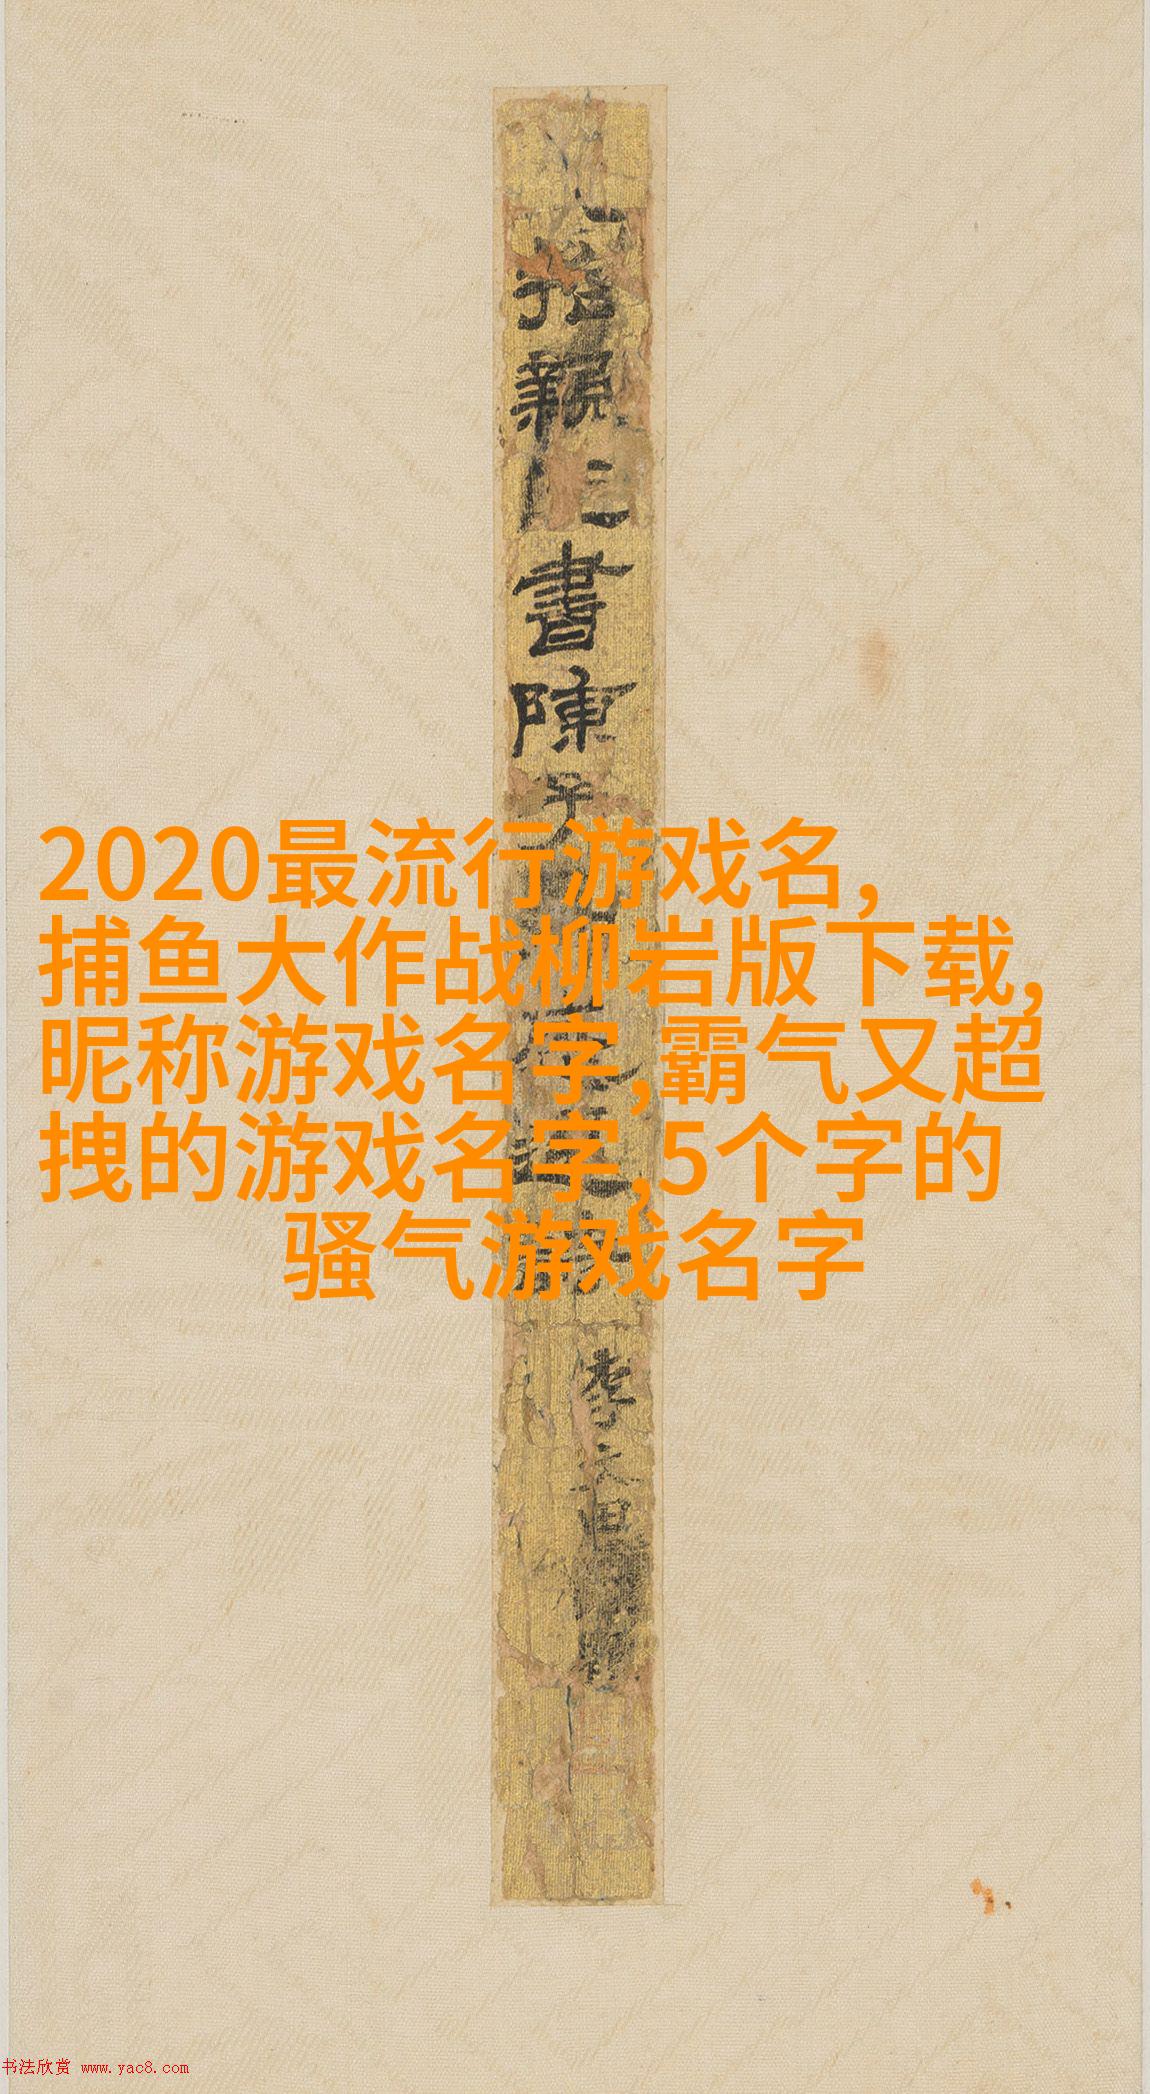 書陳
2020最流行游戏名,
捕鱼大作战柳岩版下载,
昵称游戏名字,霸气又超
拽的游戏名字,5个字的
骚气游戏名字
李文田
书法欣赏 www.yac8.com